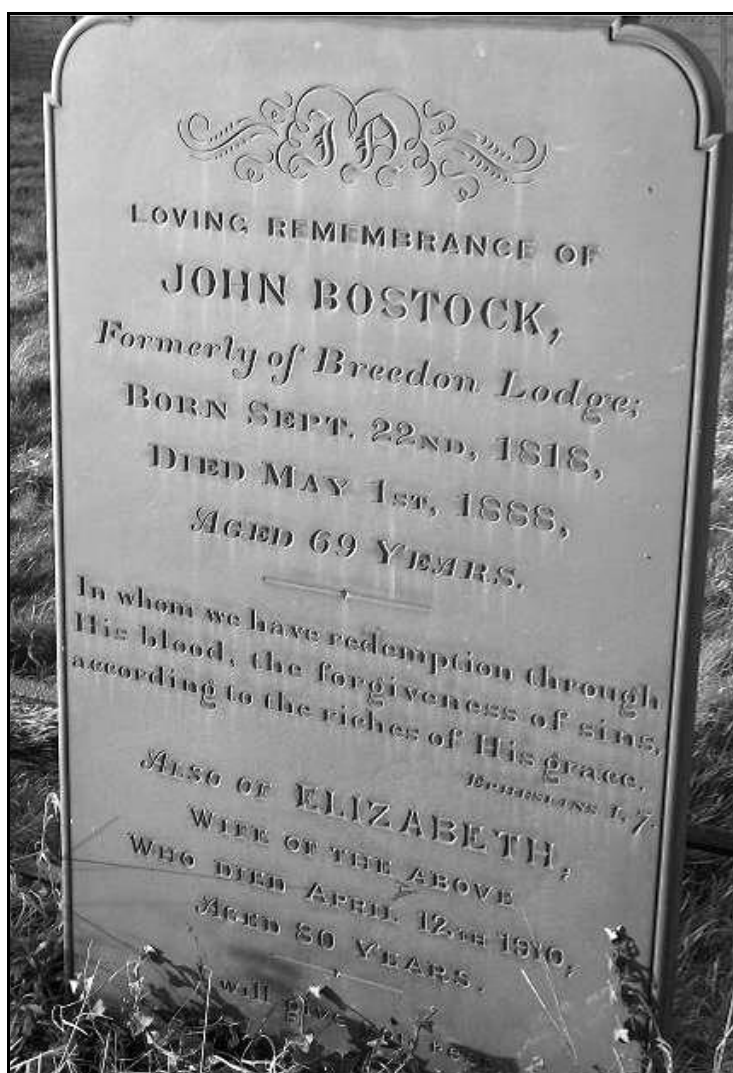 In
LOVING REMEMBRANCE OF
JOHN BOSTOCK,
Formerly of Breedon Lodge;
BORN SEPT. 22ND, 1818,
DIED MAY 1ST, 1888,
AGED 69 YEARS.
In whom we have redemption through
His blood, the forgiveness of sins,
according to the riches of His grace.
EPHESIANS 1, 7.
ALSO OF ELIZABETH,
WIFE OF THE ABOVE
WHO DIED APRIL 12TH 1910,
AGED 80 YEARS.
I will give